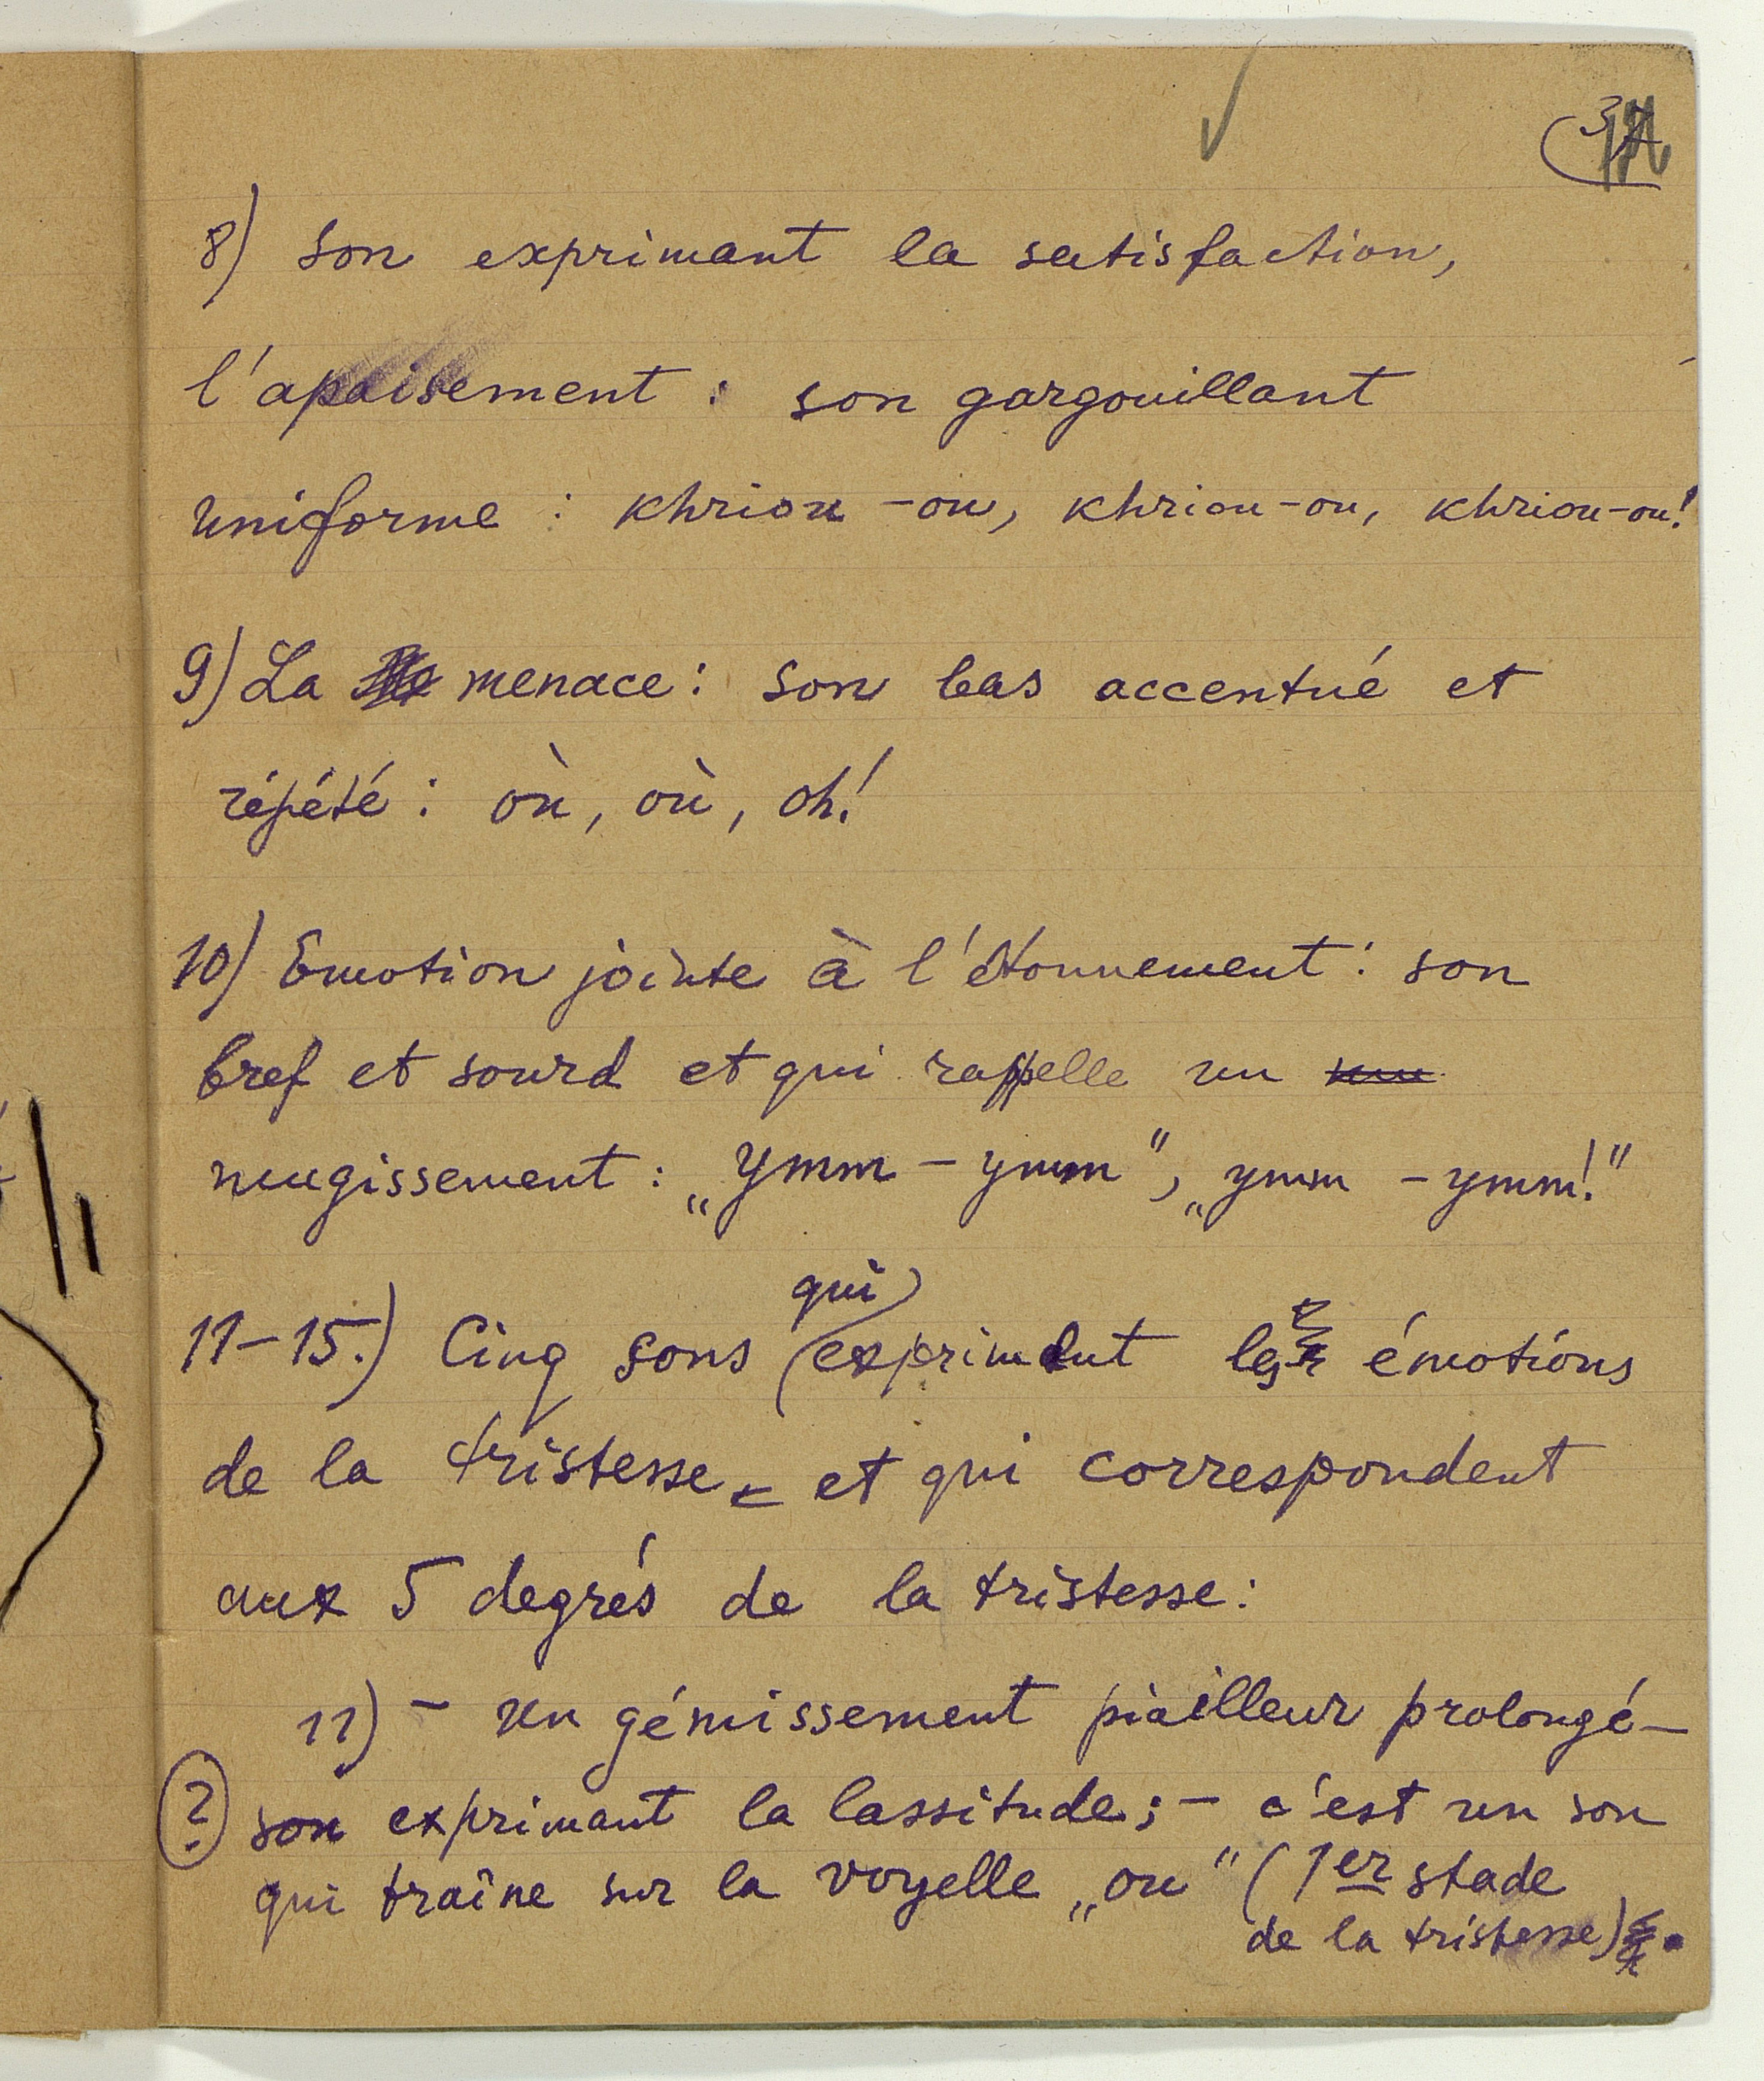 8) Son exprimant la satisfaction,
l'apaisement : son gargouillant
uniforme : khriou-ou, khriou-ou, khriou-ou!
9) La menace : son bas accentué et
répété : où, où, oh!
10) Emotion jointe à l'étonnement : son
bref et sourd et qui rappelle un
mugissement : „ymm - ymm", „ymm - ymm!"
qui
11-15.) Cinq sons expriment les émotions
de la tristesse et qui correspondent
aux 5 degrés de la tristesse :
11) - un gémissement piailleur prolongé -
? son exprimant la lassitude ; - c'est un son
qui traîne sur la voyelle „ou" (1er stade
de la tristesse).